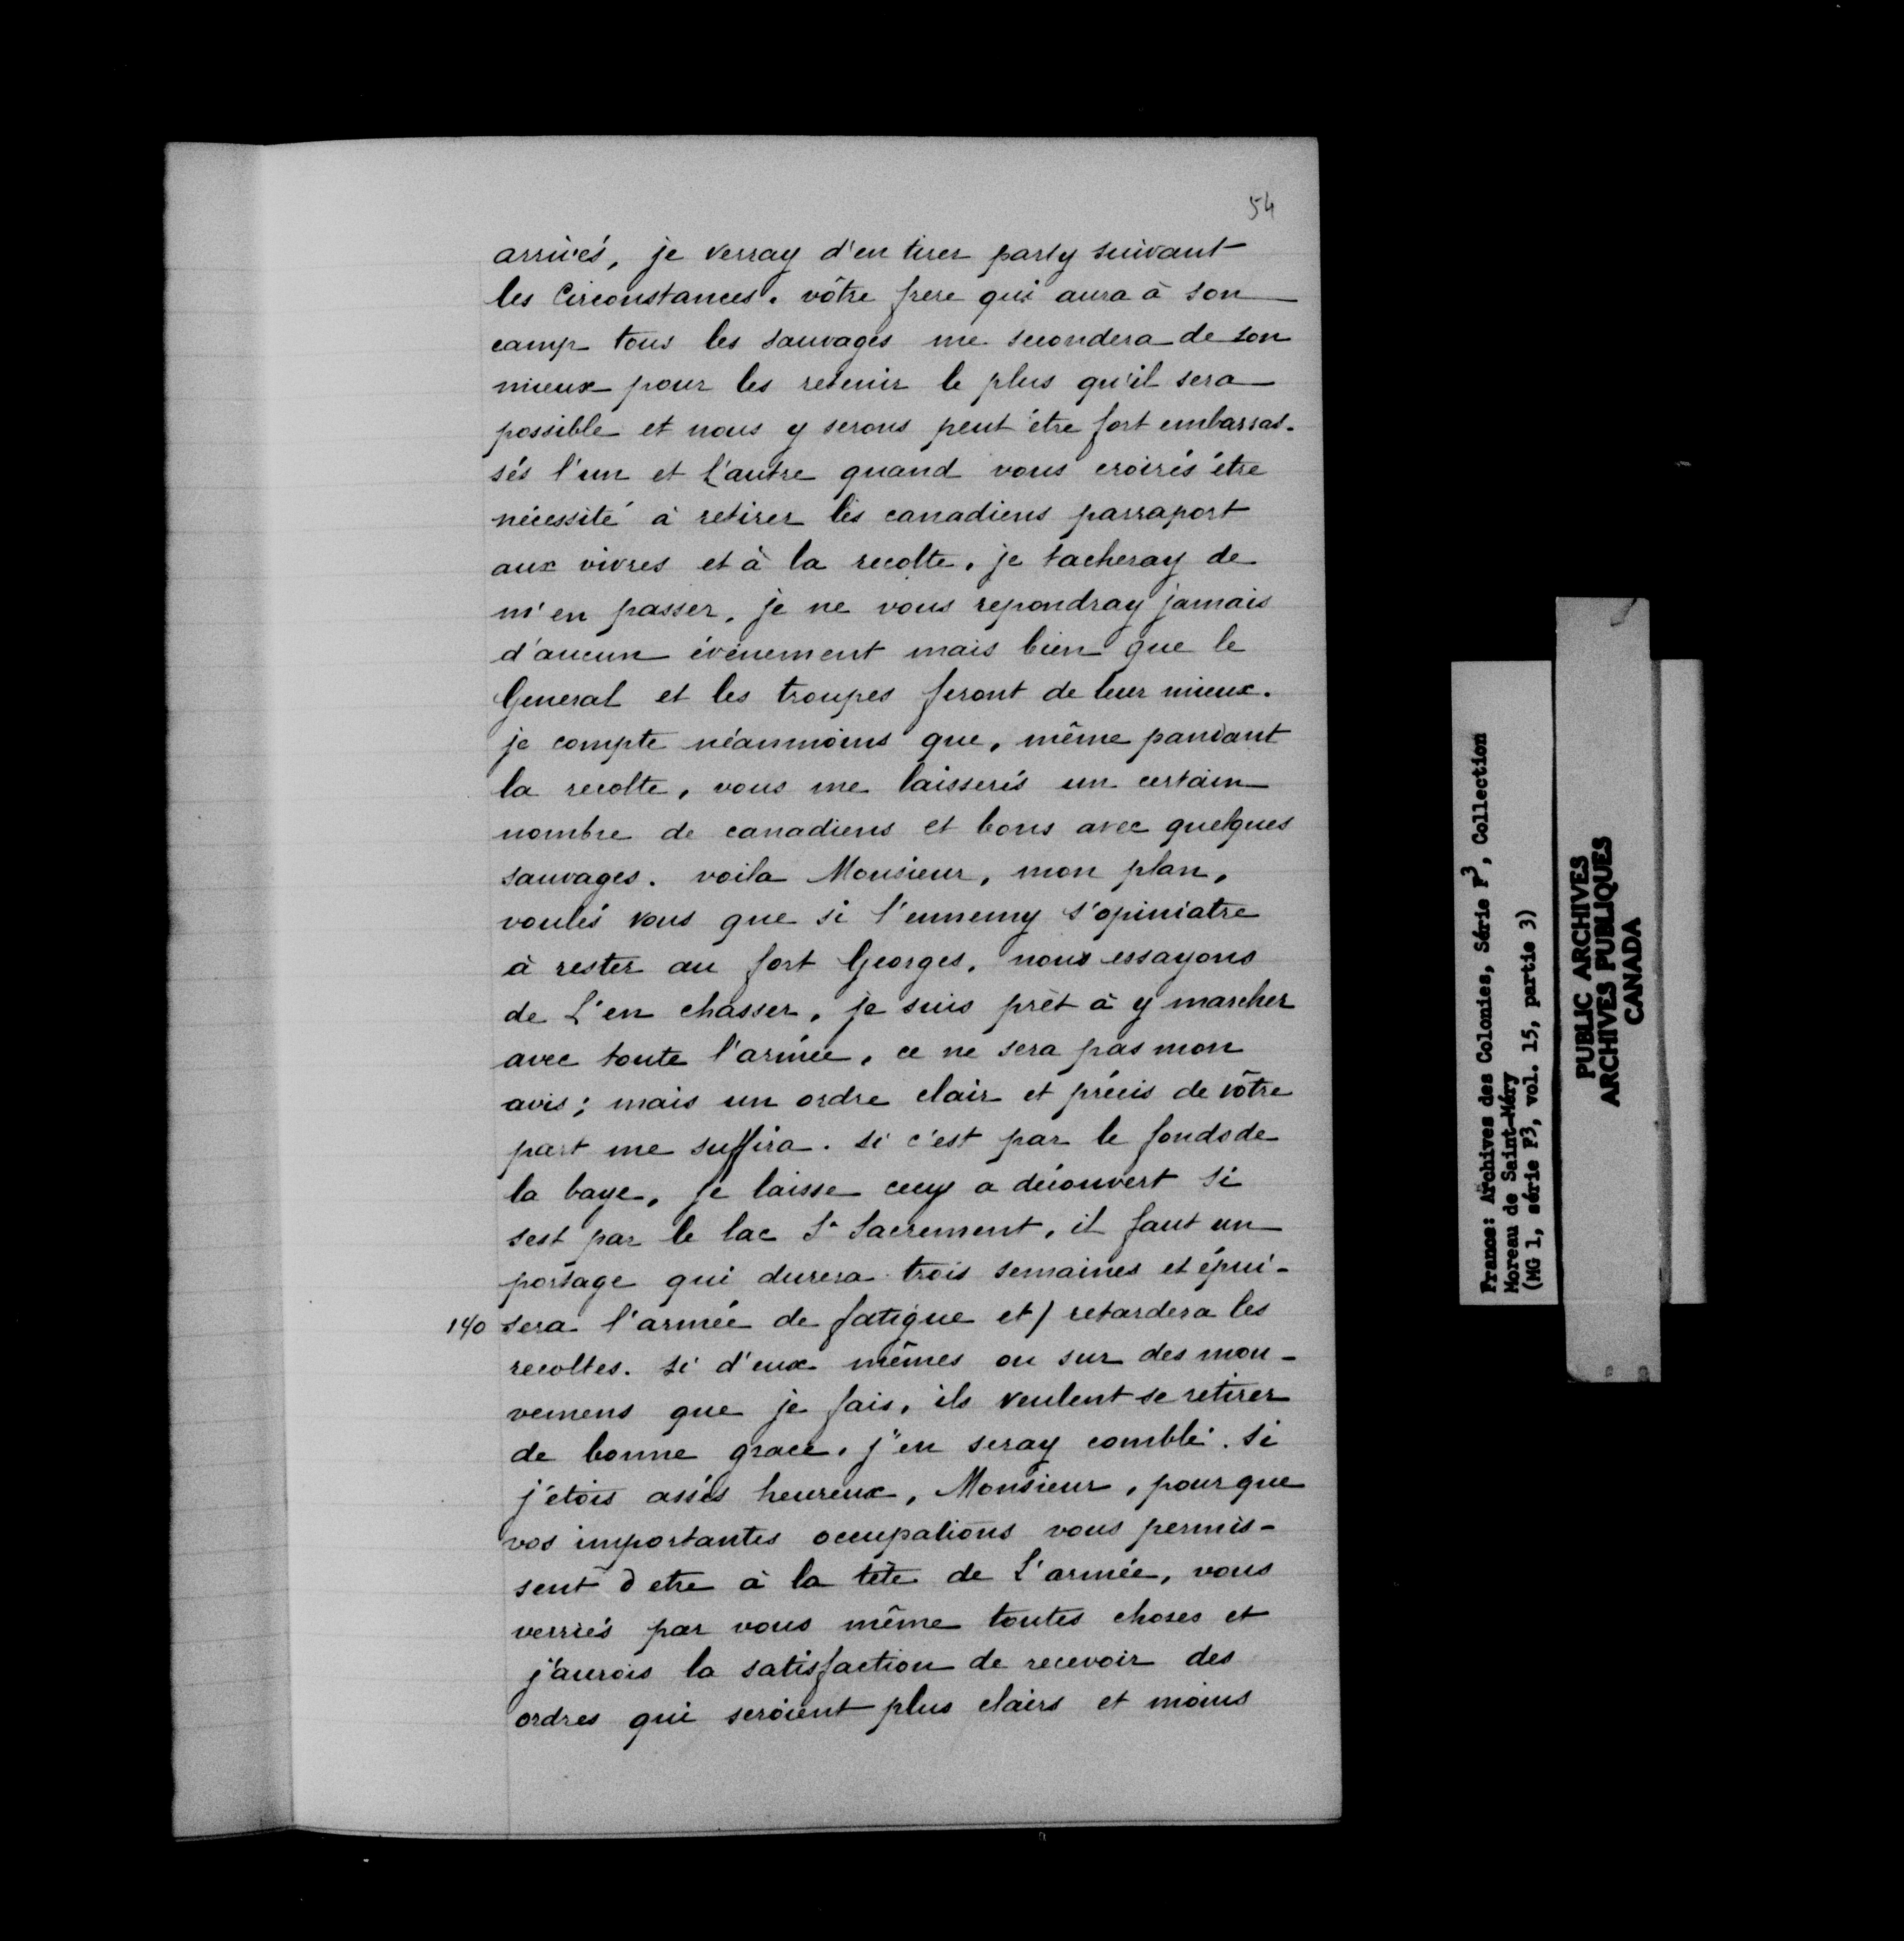 54
arrivés, je verray d'en tirer party suivant
les Circonstances. vôtre frere qui aura à son
camp tous les sauvages me secondera de son
mieux pour les retenir le plus qu'il sera
possible et nous y serons peut être fort embarras-
sés l'un et L'autre quand vous croirés être
nécessité à retirer les canadiens parraport
aux vivres et à la recolte. je tacheray de
m'en passer. je ne vous repondray jamais
d'aucun évènement mais bien que le
General et les troupes feront de leur mieux.
je compte néanmoins que, même pandant
la recolte, vous me laisserés un certain
nombre de canadiens et bons avec quelques
sauvages. voila Monsieur, mon plan,
voulés vous que si l'ennemy s'opiniatre
à rester au fort Georges, nous essayons
de L'en chasser, je suis prêt à y marcher
avec toute l'armée, ce ne sera pas mon
avis; mais un ordre clair et précis de vôtre
part me suffira. si c'est par le fonds de
la baye, je laisse cecy a découvert si
sest par le lac St Sacrement, il faut un
portage qui durera trois semaines et épui-
140 sera l'armée de fatigue et / retardera les
recoltes. si d'eux mêmes ou sur des mou-
vemens que je fais, ils veulent se retirer
de bonne grace, j'en seray comblé. si
j'étois assés heureux, Monsieur, pour que
vos importantes occupations vous permis-
sent d etre à la tête de L'armée, vous
verriés par vous même toutes choses et
j'aurois la satisfaction de recevoir des
ordres qui seroient plus clairs et moins
France: Archives des Colonies, Série F3, Collection
Moreau de Saint-Méry
(MG 1, série F3, vol. 15, partie 3)
PUBLIC ARCHIVES
ARCHIVES PUBLIQUES
CANADA